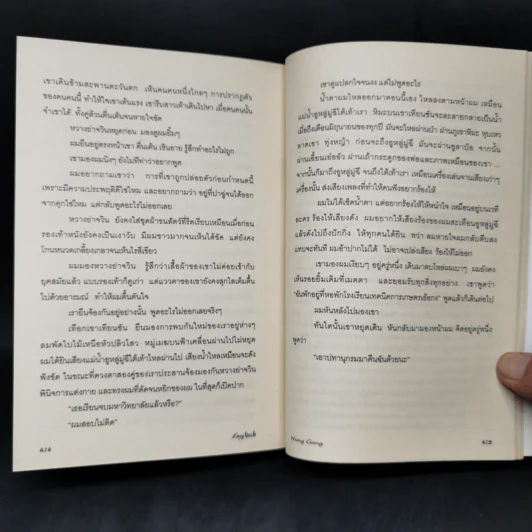 เขาเดินข้ามสะพานตะวันตก เห็นคนคนหนึ่งไกลๆ การปรากฏตัว
ของคนคนนี้ ทำให้ใจเขาเต้นแรง เขารีบสาวเท้าเดินไปหา เมื่อคนคนนั้น
จำเขาได้ ทั้งคู่ล้วนตื่นเต้นจนหายใจขัด
หวางย่าจวินหยุดก่อน มองดูผมยิ้มๆ
ผมยืนอยู่ตรงหน้าเขา ตื่นเต้น เขินอาย รู้สึกทำอะไรไม่ถูก
เขามองผมนิ่งๆ ยังไม่มีท่าว่าอยากพูด
ผมอยากถามเขาว่า การที่เขาถูกปล่อยตัวก่อนกำหนดนี้
เพราะมีความประพฤติดีใช่ไหม และอยากถามว่า อยู่ที่ป่าอู่จนได้ออก
จากคุกใช่ไหม แต่กลับพูดอะไรไม่ออกเลย
หวางย่าจวิน ยังคงใส่ชุดผ้าขนสัตว์ที่รีดเรียบเหมือนเมื่อก่อน
รองเท้าหนังยังคงเป็นเงาวับ มีผมขาวมากจนเห็นได้ชัด แต่ยังคง
โกนหนวดเกลี้ยงเกลาจนเห็นไรสีเขียว
ผมมองหวางย่าจวิน รู้สึกว่าเสื้อผ้าของเขาไม่ค่อยเข้ากับ
ยุคสมัยแล้ว แบบรองเท้าก็ดูเก่า แต่แววตาของเขายังคงสุกใสเต็มตื้น
ไปด้วยอารมณ์ ทำให้ผมตื้นตันใจ
เรายืนจ้องกันอยู่อย่างนั้น พูดอะไรไม่ออกเลยจริงๆ
เทือกเขาเทียนซัน ยืนมองการพบกันใหม่ของเราอยู่ห่างๆ
ลมพัดใบไม้เหนือหัวปลิวไสว หมู่เมฆบนฟ้าเคลื่อนผ่านไปไม่หยุด
ผมได้ยินเสียงแม่น้ำอูหลู่มู่ฉีใต้เท้าไหลผ่านไป เสียงน้ำไหลเหมือนจะดัง
ฟังชัด ในขณะที่ดวงตาสองคู่ของเราประสานจ้องมองกันหวางย่าจวิน
พินิจการแต่งกาย และทรงผมที่ดัดจนหยิกของผม ในที่สุดก็เปิดปาก
“เธอเรียนจบมหาวิทยาลัยแล้วหรือ?”
“ผมสอบไม่ติด”
414
English
เขาดูแปลกใจจนงง แต่ไม่พูดอะไร
น้ำตาผมไหลออกมาตอนนี้เอง ไหลลงตามหน้าผม เหมือน
แม่น้ำอูหลู่มู่ฉีใต้เท้าเรา หิมะบนเขาเทียนซันจะละลายกลายเป็นน้ำ
เมื่อถึงเดือนมิถุนายนของทุกปี มันจะไหลผ่านป่า ผ่านภูเขาหิมะ หุบเหว
ลาดเขา ทุ่งหญ้า ก่อนจะถึงอูหลู่มู่ฉี มันจะผ่านอูลาป๋อ จากนั้น
ผ่านเยี้ยนเอ๋อวัว ผ่านเถ้ากระดูกของพ่อและภาพเหมือนของเขา ...
จากนั้นก็มาถึงอูหลู่มู่ฉี จนถึงใต้เท้าเรา เหมือนเครื่องเล่นจานเสียงเก่าๆ
เครื่องนั้น ส่งเสียงเพลงที่ทำให้คนฟังอยากร้องไห้
ผมไม่ได้เช็ดน้ำตา แต่อยากร้องไห้ให้หนำใจ เหมือนอยู่บนเวที
ละคร ร้องไห้เสียงดัง ผมอยากให้เสียงร้องของผมสะเทือนอูหลู่มู่ฉี
แล้วดังไปถึงปักกิ่ง ให้ทุกคนได้ยิน ทว่า ลมหายใจผมกลับตีบตัน
แทบจะทันที ผมอ้าปากไม่ได้ ไม่อาจเปล่งเสียง ร้องไห้ไม่ออก
เขามองผมเงียบๆ อยู่ครู่หนึ่ง เดินมาตบไหล่ผมเบาๆ ผมยังคง
เห็นรอยยิ้มเดิมที่เมตตา และยอมรับทุกสิ่งทุกอย่าง เขาพูดว่า
“ฉันพักอยู่ที่หอพักโรงเรียนเทคนิคการเกษตรเอ้อกง” พูดแล้วก็เดินต่อไป
ผมหันหลังไปมองเขา
ทันใดนั้นเขาหยุดเดิน หันกลับมามองหน้าผม คิดอยู่ครู่หนึ่ง
พูดว่า
“เอาปทานุกรมมาคืนฉันด้วยนะ”
Wang Gang
415